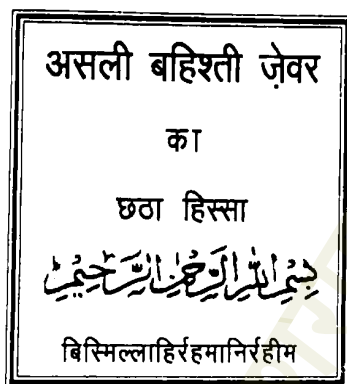 असली बहिश्ती ज़ेवर
का
छठा हिस्सा
بِسْمِ اللهِ الرَّحْمٰنِ الرَّحِيْمِ
बिस्मिल्लाहिर्रहमानिर्रहीम